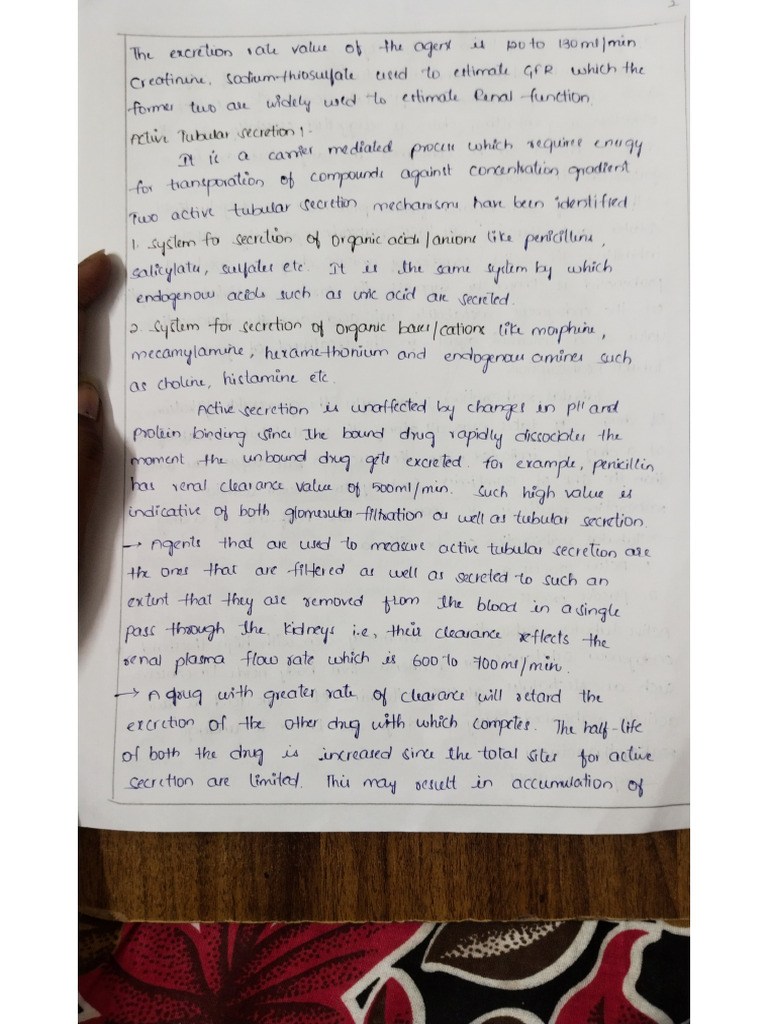 2
The excretion rate value of the agent is 120 to 130 ml/min
Creatinine, sodium-thiosulfate used to estimate GFR which the
former two are widely used to estimate Renal function.
Active Tubular secretion :-
It is a carrier mediated process which requires energy
for transporation of compounds against concentration gradient.
Two active tubular secretion mechanisms have been identified.
1. System fo secretion of organic acids/anions like penicillins,
salicylates, sulfates etc. It is the same system by which
endogenous acids such as uric acid are secreted.
2. System for secretion of organic bases/cations like morphine,
mecamylamine, hexamethonium and endogenous amines such
as choline, histamine etc.
Active secretion is unaffected by changes in pH and
protein binding since the bound drug rapidly dissociates the
moment the unbound drug gets excreted. for example, penicillin
has renal clearance value of 500ml/min. Such high value is
indicative of both glomerular-filtration as well as tubular secretion.
→ Agents that are used to measure active tubular secretion are
the ones that are filtered as well as secreted to such an
extent that they are removed from the blood in a single
pass through the kidneys i.e, their clearance reflects the
renal plasma flow rate which is 600 to 700ml/min.
→ A drug with greater rate of clearance will retard the
excretion of the other drug with which competes. The half-life
of both the drug is increased since the total sites for active
secretion are limited. This may result in accumulation of